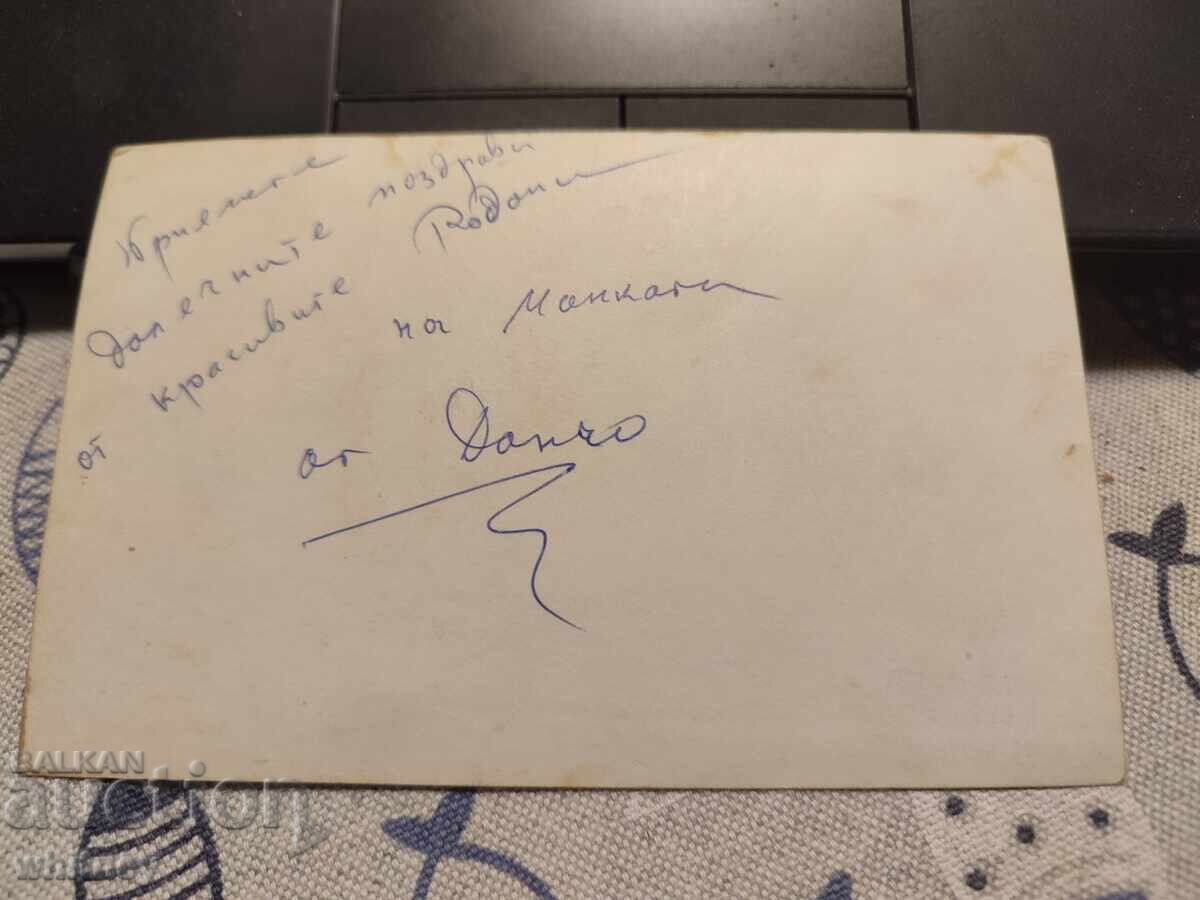 Приемете
далечните поздрави
от красивите Родопи
на Манката
от Данчо
BALKAN
auction
whitney